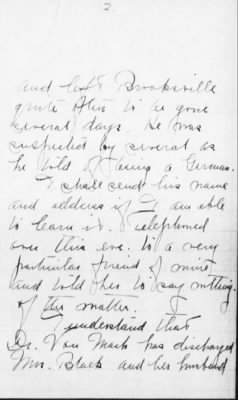 2.
and left Brooksville
quite often to be gone
several days. He was
suspected by several as
he told of being a German.
I shall send his name
and address if I am able
to learn it. Telephoned
over this eve. to a very
particular friend of mine
and told her to say nothing
of the matter.
I understand that
Dr. Von Mach has discharged
Mrs. Black and her husband